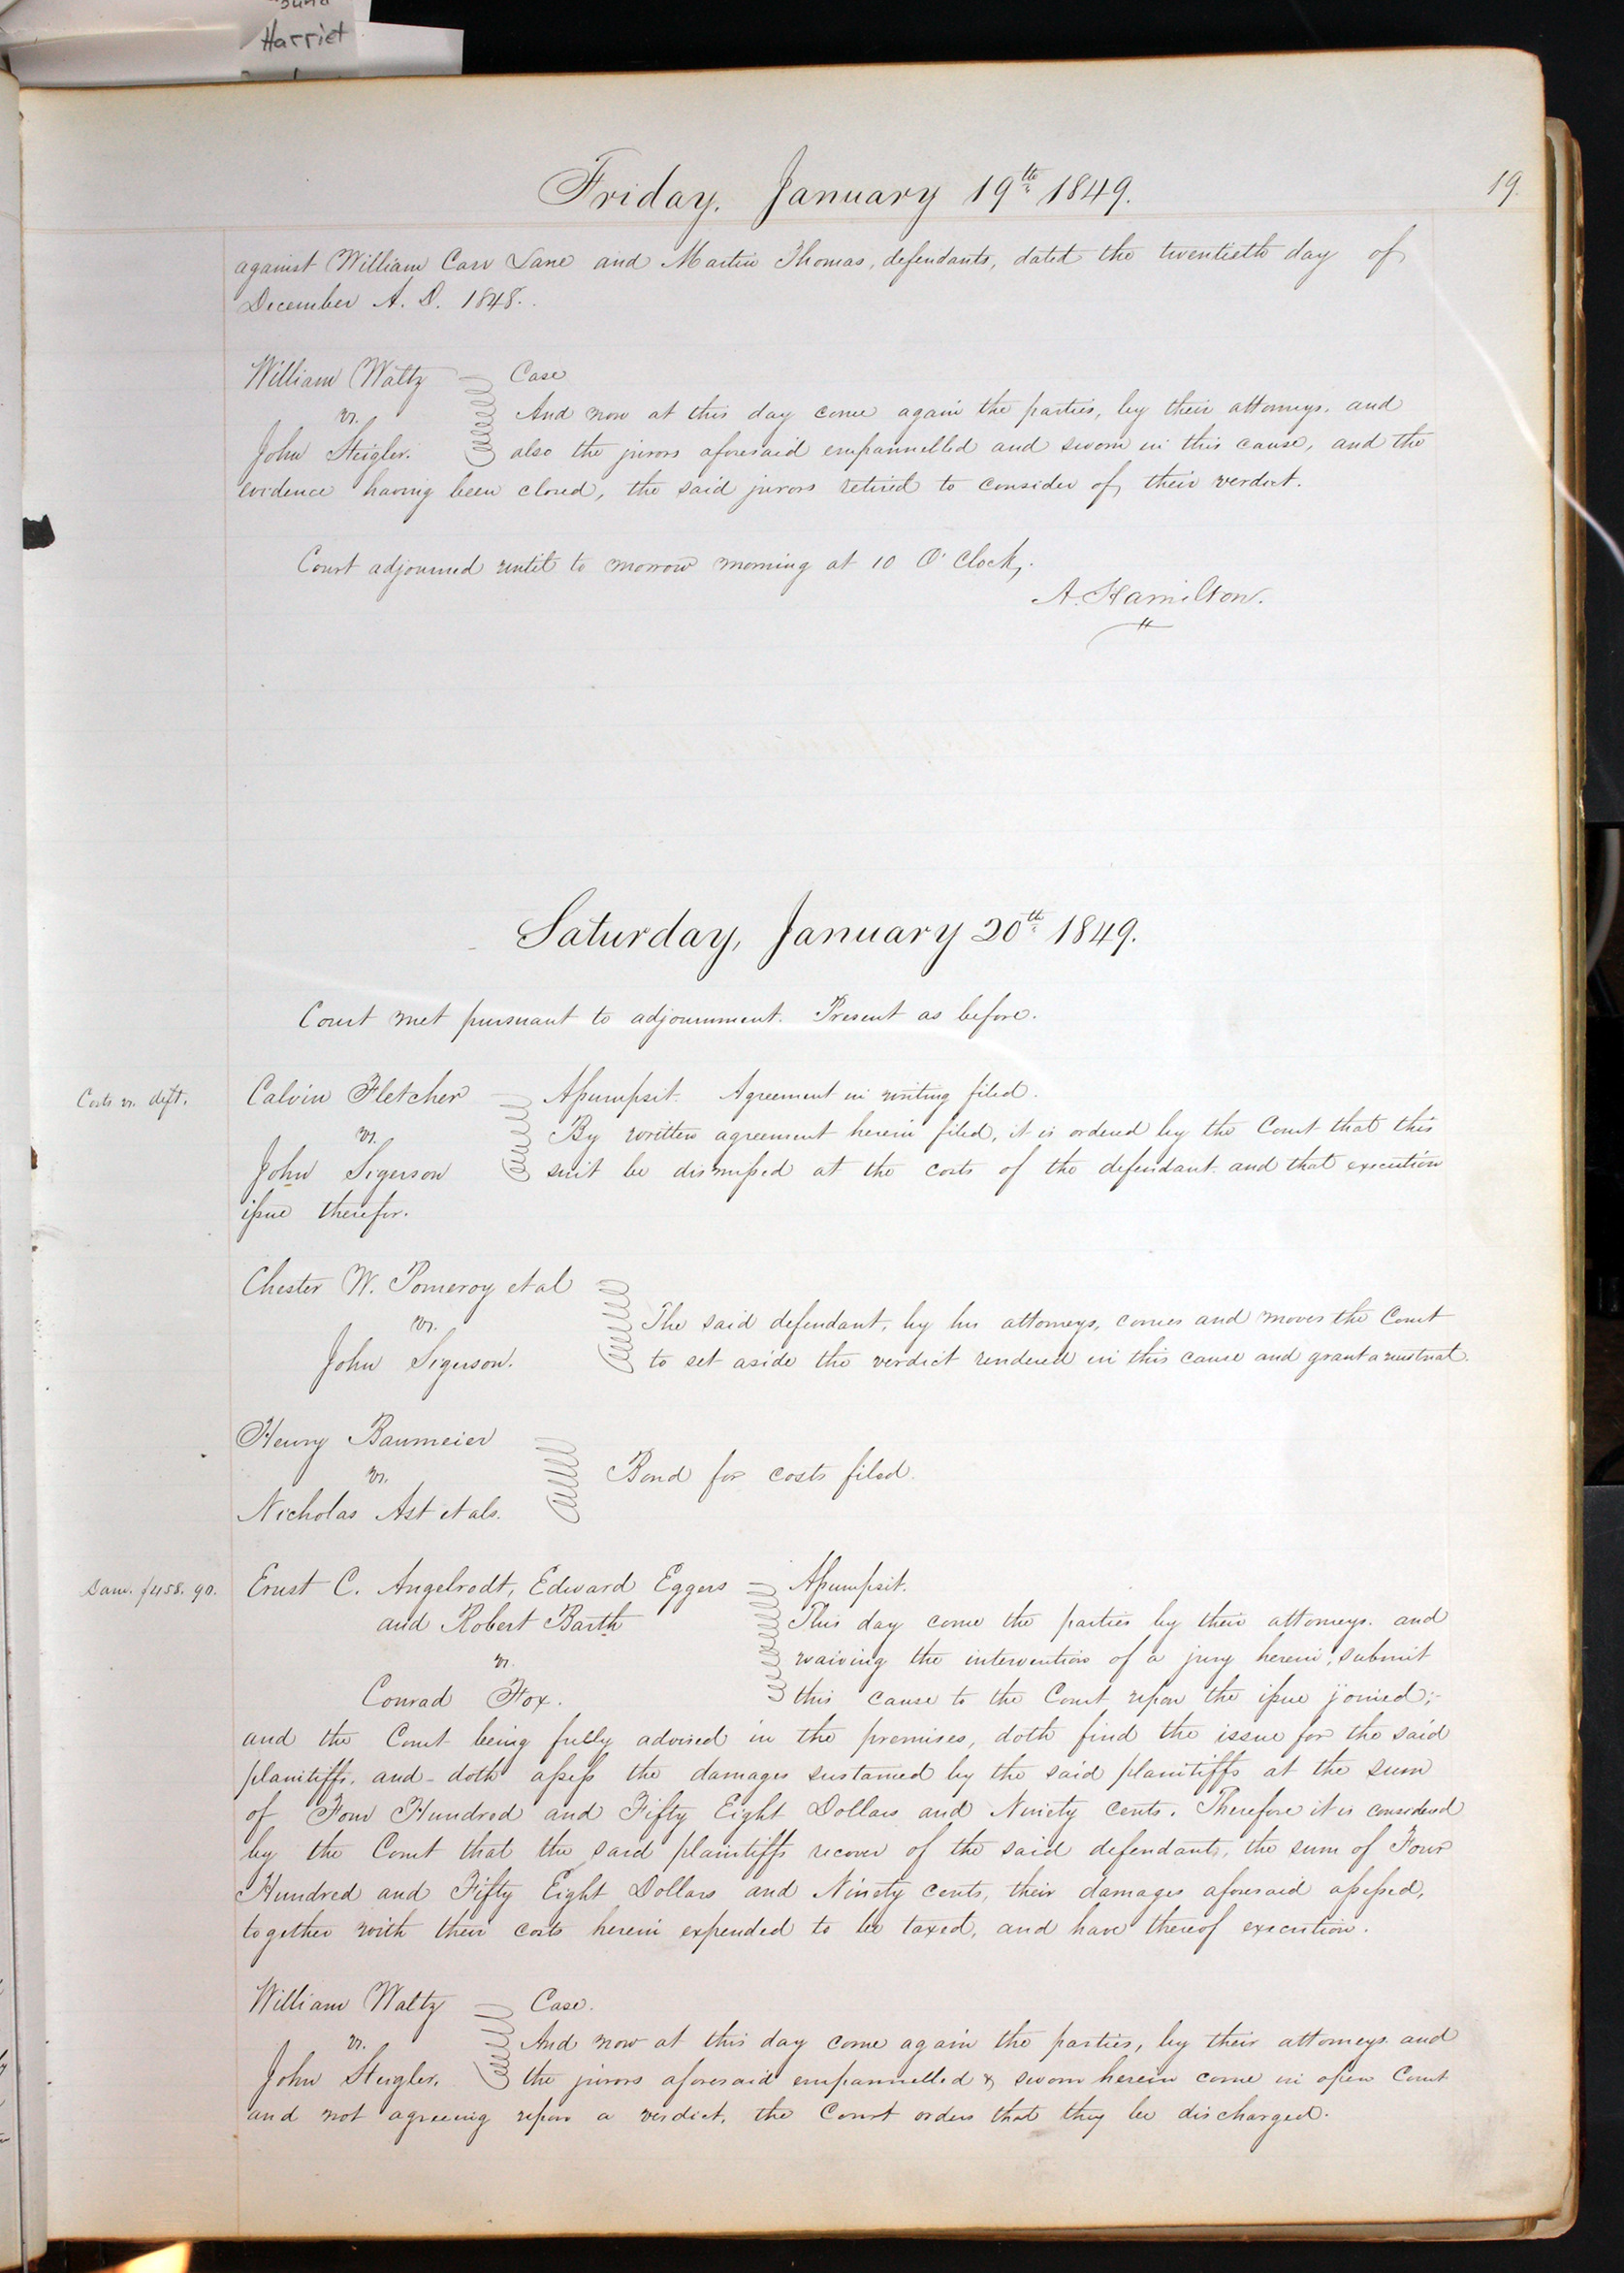 Harriet
Friday, January 19th 1849.
19.
against William Carr Lane and Martin Thomas, defendants, dated the twentieth day of
December A. D. 1848.
William Waltz
vs.
John Steigler.
Case
And now at this day come again the parties, by their attorneys, and
also the jurors aforesaid empannelled and sworn in this cause, and the
evidence having been closed, the said jurors retired to consider of their verdict.
Court adjourned until to morrow morning at 10 O'Clock.
A. Hamilton.
Saturday, January 20th 1849.
Court met pursuant to adjournment. Present as before.
Costs vs. deft.
Calvin Fletcher
vs.
John Sigerson
Assumpsit. Agreement in writing filed.
By written agreement herein filed, it is ordered by the Court that this
suit be dismissed at the costs of the defendant and that execution
issue therefor.
Chester W. Pomeroy et al
vs.
John Sigerson.
The said defendant, by his attorneys, comes and moves the Court
to set aside the verdict rendered in this cause and grant a new trial.
Henry Baumeier
vs.
Nicholas Ast et als.
Bond for costs filed.
Dam. $458.90.
Ernst C. Angelrodt, Edward Eggers
and Robert Barth
vs.
Conrad Fox.
Assumpsit.
This day come the parties by their attorneys, and
waiving the intervention of a jury herein, submit
this cause to the Court upon the issue joined;
and the Court being fully advised in the premises, doth find the issue for the said
plaintiffs, and doth assess the damages sustained by the said plaintiffs at the sum
of Four Hundred and Fifty Eight Dollars and Ninety cents. Therefore it is considered
by the Court that the said plaintiffs recover of the said defendants, the sum of Four
Hundred and Fifty Eight Dollars and Ninety cents, their damages aforesaid assessed,
together with their costs herein expended to be taxed, and have thereof execution.
William Waltz
vs.
John Steigler.
Case.
And now at this day come again the parties, by their attorneys and
the jurors aforesaid empannelled & sworn herein come in open Court
and not agreeing upon a verdict, the Court orders that they be discharged.